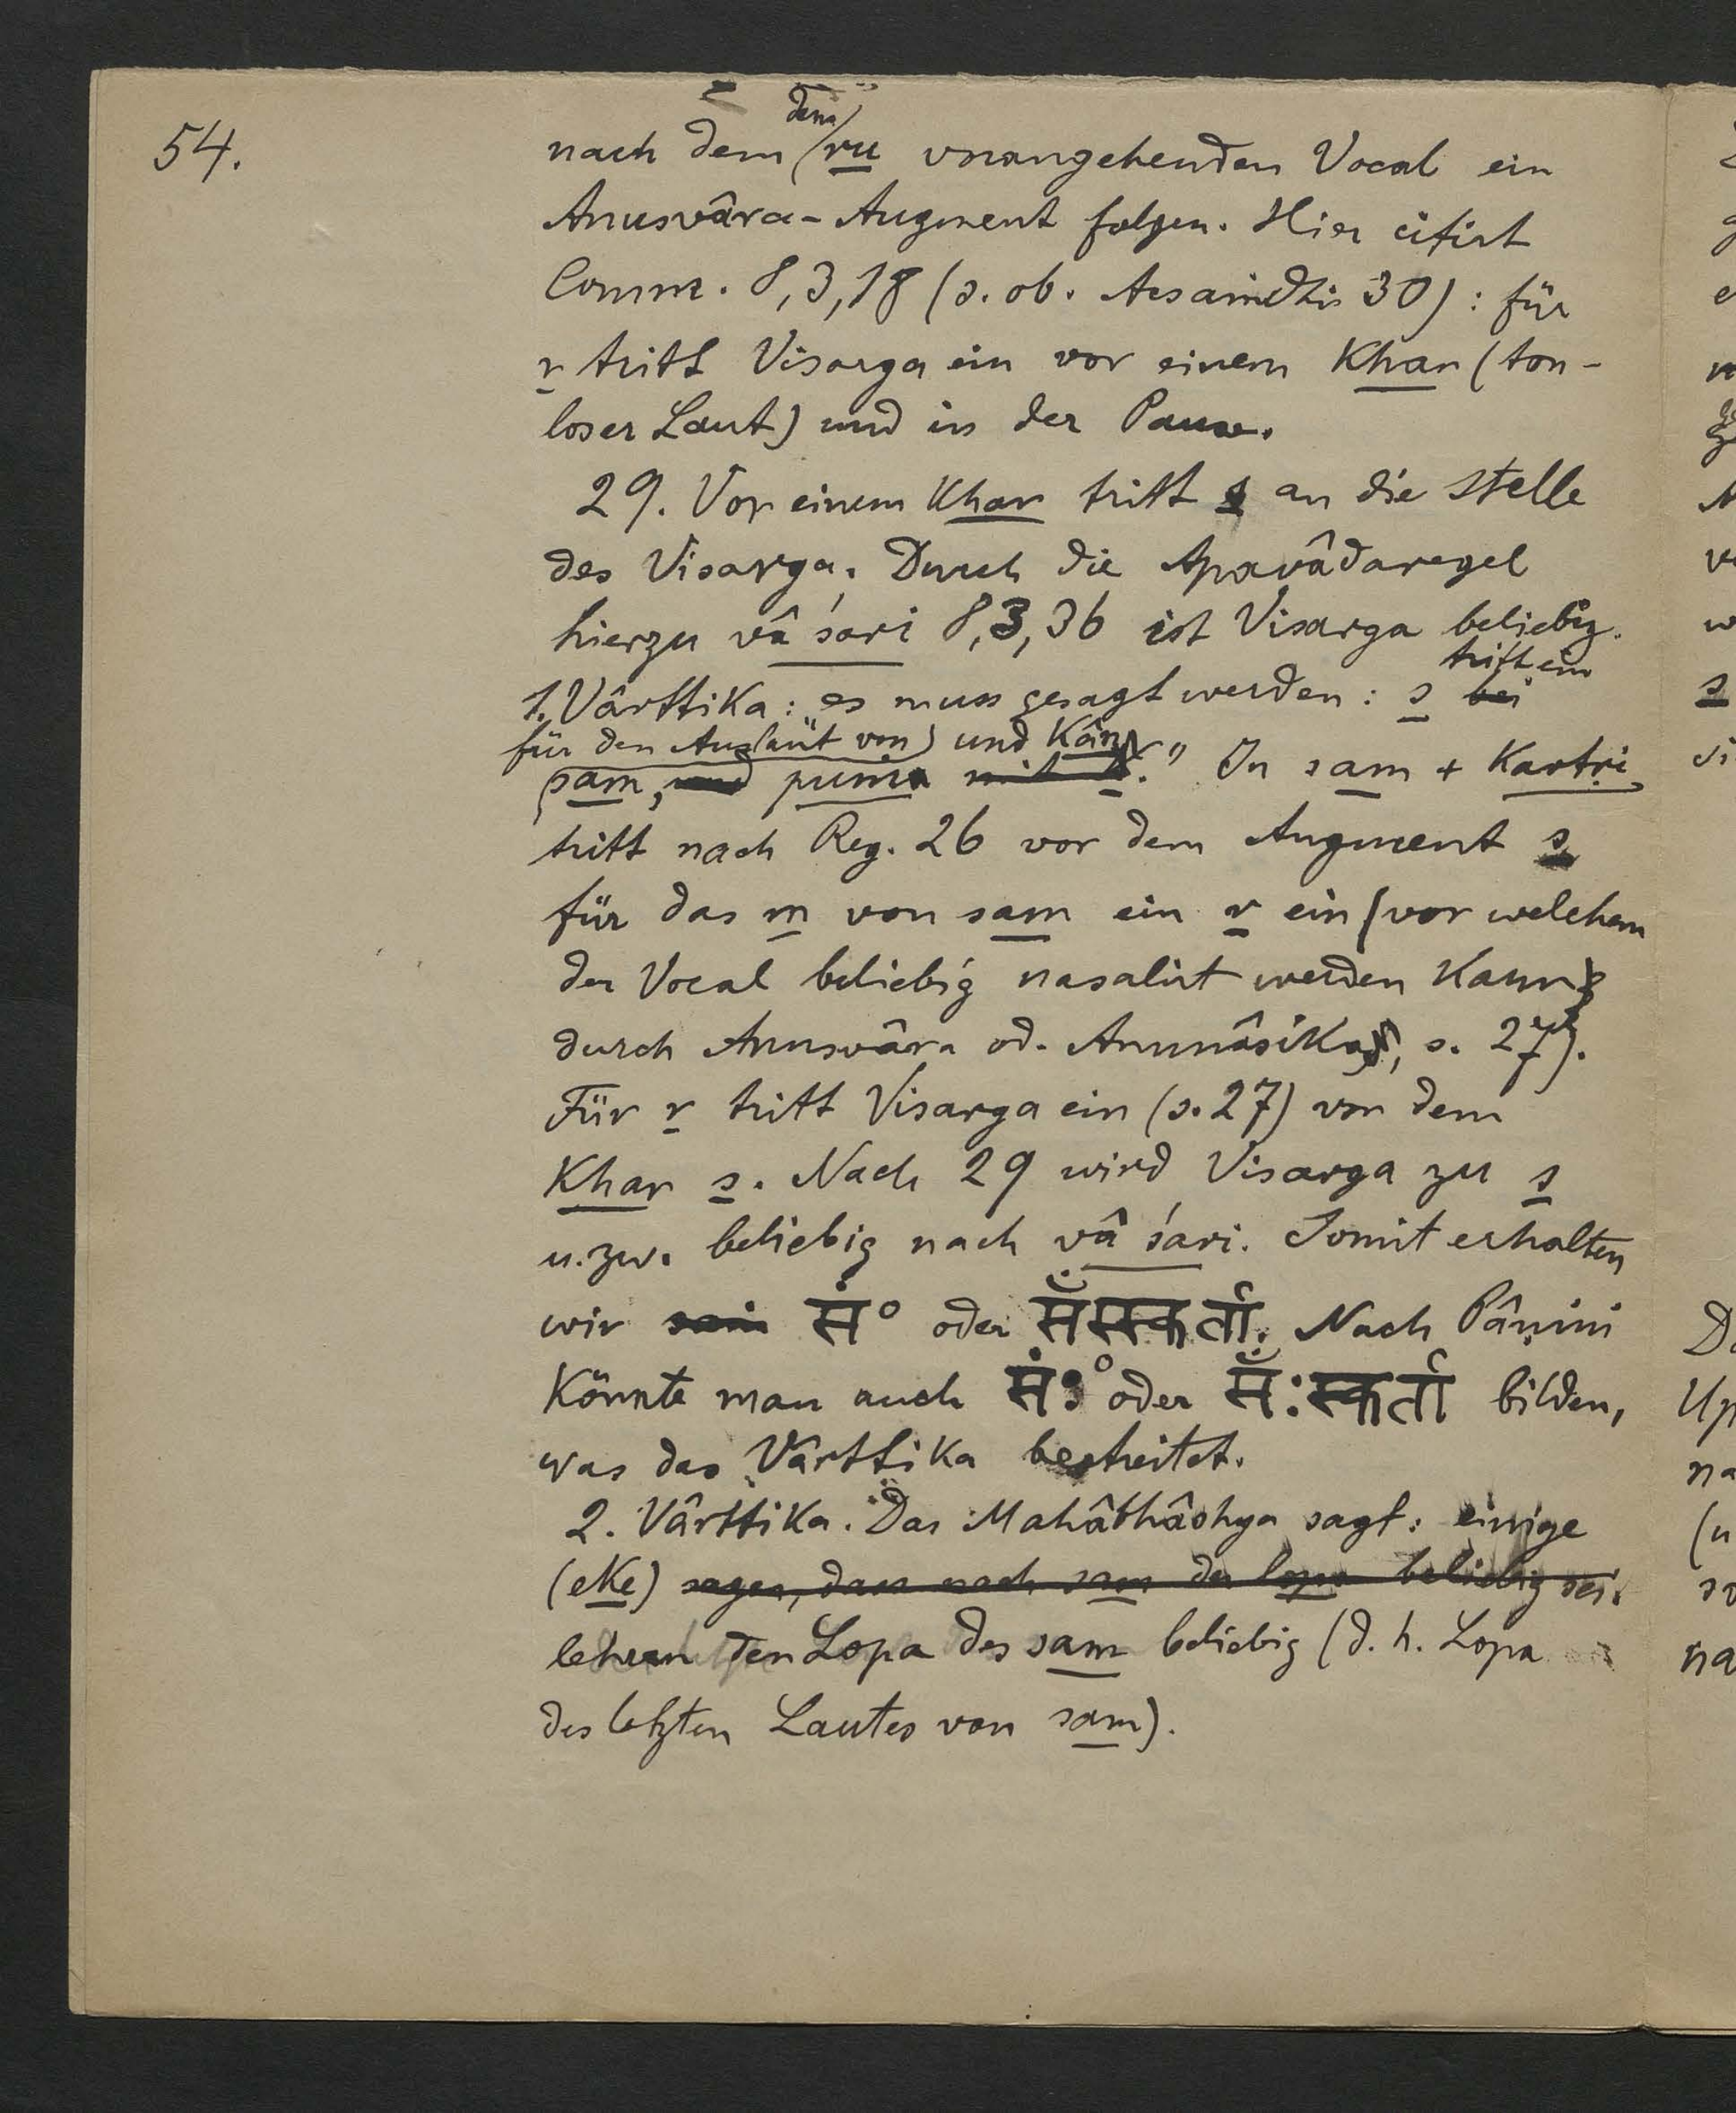 54.
nach dem dem ru vorangehenden Vocal ein
Anusvâra-Augment folgen. Hier citirt
Comm. 8,3,18 (s. ob. : für
r tritt Visarga ein vor einem Khar (ton-
loser Laut) und in der Pause.
29. Vor einem Khar tritt s an die Stelle
des Visarga. Durch die Apavâdaregel
hierzu vâ śari 8,3,36 ist Visarga beliebig.
1. Vârttika: es muss gesagt werden: s bei tritt ein
für den Auslaut von und Kân
sam, und pum mit s." In sam + Kartṛi
tritt nach Reg. 26 vor dem Augment s
für das m von sam ein r ein (vor welchem
der Vocal beliebig nasalirt werden Kann
durch Anusvâra od. Anunâsika, s. 27).
Für r tritt Visarga ein (s. 27) vor dem
Khar s. Nach 29 wird Visarga zu s
u. zw. beliebig nach vâ śari. Somit erhalten
wir saṁ सं° oder सँस्स्कर्ता. Nach Pâṇini
Könnte man auch संः° oder सँःस्कर्ता bilden,
was das Vârttika bestreitet.
2. Vârttika. Das Mahâbhâshya sagt: einige
(eKe) sagen, dass nach sam der lopa beliebig sei.
lehren den Lopa des sam beliebig (d. h. Lopa
des letzten Lautes von sam).